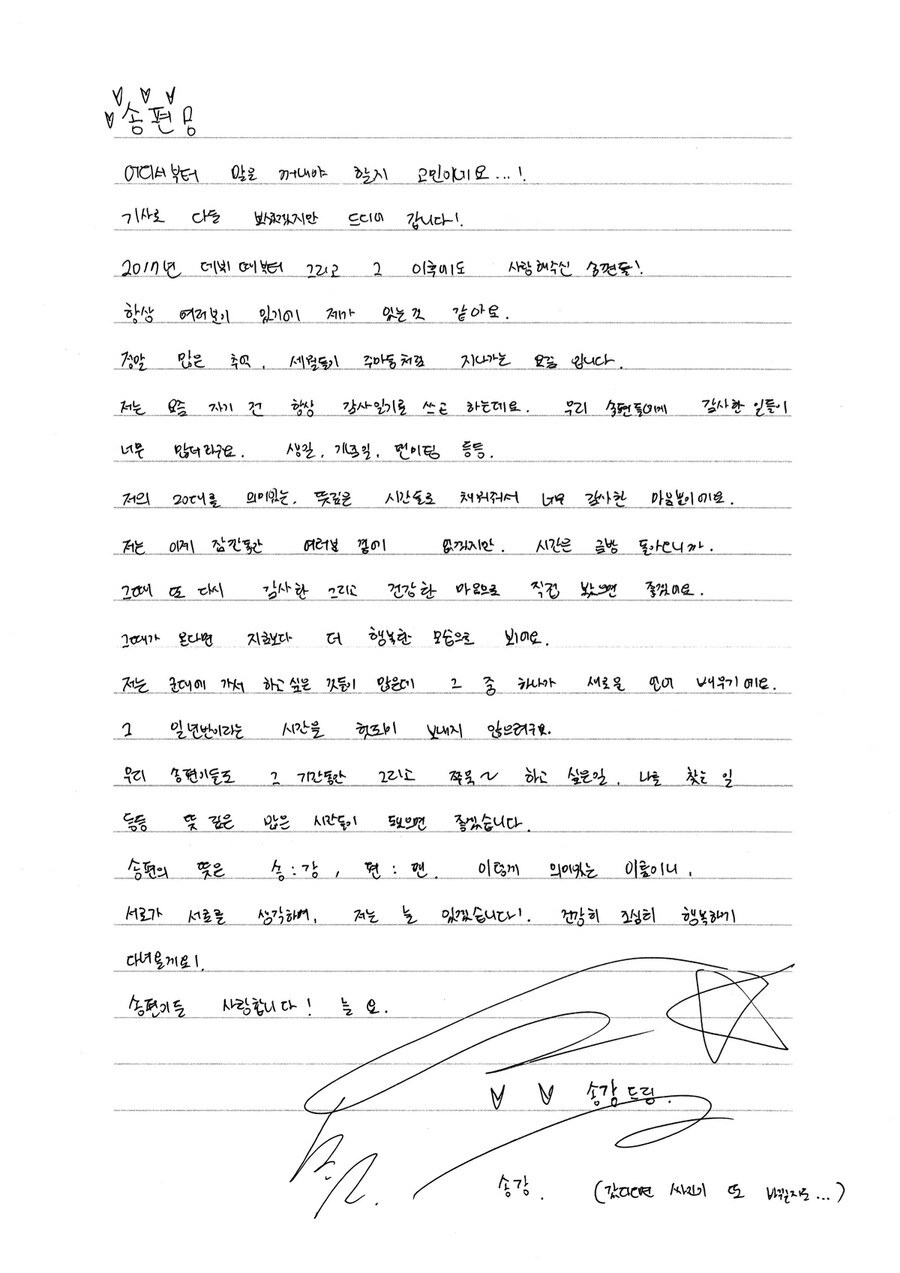 송편
어디서부터 말을 꺼내야 할지 고민이기요...!
기사로 다들 보셨겠지만 드디어 갑니다!
2017년 데뷔 때부터 그리고 그 이후에도 사랑해주신 송편들!
항상 여러분이 있기에 제가 있는것 같아요.
정말 많은 추억, 세월들이 주마등처럼 지나가는 요즘 입니다.
저는 요즘 자기 전 항상 감사일기를 쓰고 하는데요. 우리 송편들에게 감사한 일들이
너무 많더라구요. 생일, 개주일, 팬미팅 등등.
저의 20대를 의미있는, 뜻깊은 시간들로 채워줘서 너무 감사한 마음뿐이에요.
저는 이제 잠깐동안 여러분 곁에 없겠지만. 시간은 금방 돌아오니까.
그때 또 다시 감사한 그리고 건강한 마음으로 직접 봤으면 좋겠어요.
그때가 온다면 지금보다 더 행복한 모습으로 봐요.
저는 군대에 가서 하고싶은 것들이 많은데 그 중 하나가 새로운 언어 배우기에요.
그 일년반이라는 시간을 헛되이 보내지 않으려구요.
우리 송편이들도 그 기간동안 그리고 쭈욱~ 하고 싶은일, 나를 찾는 일
등등 뜻 깊은 많은 시간들이 됐으면 좋겠습니다.
송편의 뜻은 송:강, 편:팬. 이렇게 의미있는 이름이니,
서로가 서로를 생각하며, 저는 늘 있겠습니다!. 건강히 조심히 행복하게
다녀올게요!.
송편이들 사랑합니다! 늘 요.
송강 드림.
송강. (갔다오면 싸인이 또 바뀔지도...)